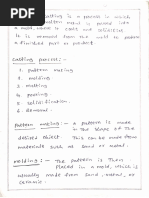 casting is a process in which
metal is poured into
a mold, where it cools and solidifies
It is removed from the mold to obtain
a finished part or product
casting process :-
1. pattern making
2. molding
3. melting
4. pouring
5. solidification
6. demold.
pattern making :- a pattern is made
in the shape of the
desired object This can be made from
materials such as sand or metal
molding :- The pattern is then
placed in a mold, which is
usually made from sand, metal, or
ceramic.